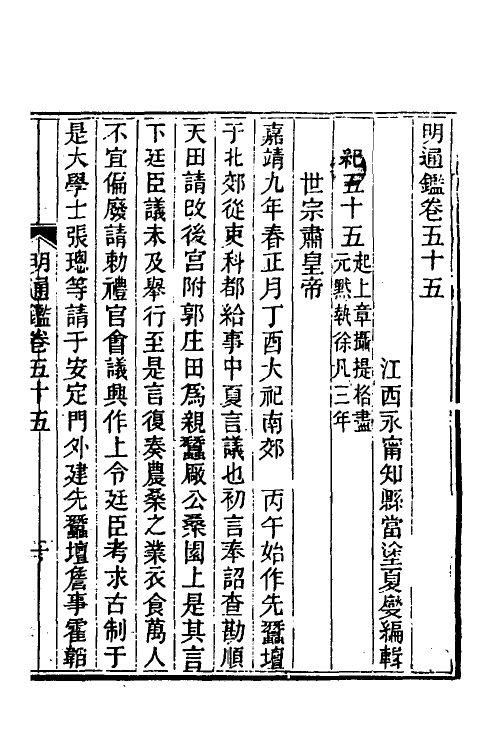 明通鑑卷五十五
江西永甯知縣當塗夏燮編輯
紀五十五起上章攝提格盡
元黓執徐凡三年
世宗肅皇帝
嘉靖九年春正月丁酉大祀南郊　丙午始作先蠶壇
于北郊從吏科都給事中夏言議也初言奉詔查勘順
天田請改後宮附郭庄田爲親蠶厰公桑園上是其言
下廷臣議未及舉行至是言復奏農桑之業衣食萬人
不宜偏廢請勅禮官會議興作上令廷臣考求古制于
是大學士張璁等請于安定門外建先蠶壇詹事霍韜
明通鑑卷五十五